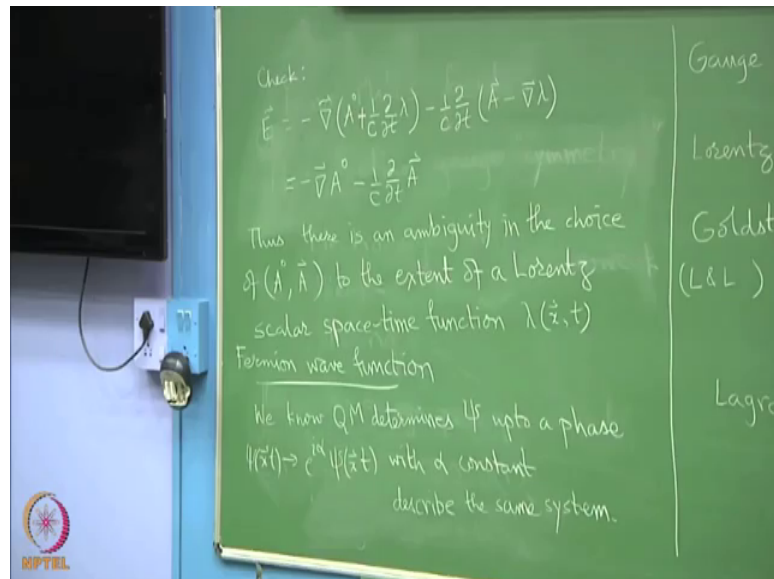 Check:
E⃗ = -∇⃗(A⁰ + 1/c ∂/∂t λ) - 1/c ∂/∂t (A⃗ - ∇⃗λ)
= -∇⃗A⁰ - 1/c ∂/∂t A⃗
Thus there is an ambiguity in the choice
of (A⁰, A⃗) to the extent of a Lorentz
scalar space-time function λ(x⃗, t)
Fermion wave function
We know QM determines ψ upto a phase
ψ(x⃗ t) → e^{iα} ψ(x⃗ t) with α constant
describe the same system.
Gauge
Lorentz
Goldst
(L&L)
Lagra
NPTEL